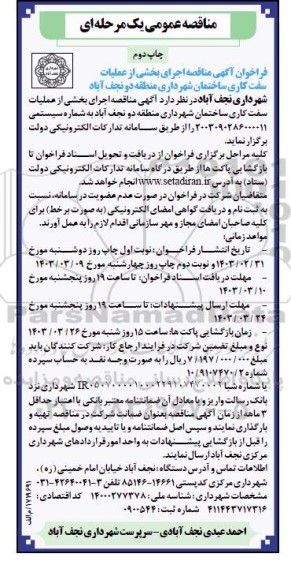 مناقصه عمومی یک مرحله ای
چاپ دوم
فراخوان آگهی مناقصه اجرای بخشی از عملیات
سفت کاری ساختمان شهرداری منطقه دو نجف آباد
شهرداری نجف آباد در نظر دارد آگهی مناقصه اجرای بخشی از عملیات
سفت کاری ساختمان شهرداری منطقه دو نجف آباد به شماره سیستمی
۲۰۰۳۰۹۰۲۸۶۰۰۰۰۱۱ را از طریق سامانه تدارکات الکترونیکی دولت
برگزار نماید.
کلیه مراحل برگزاری فراخوان از دریافت و تحویل اسناد فراخوان تا
بازگشایی پاکت ها از طریق درگاه سامانه تدارکات الکترونیکی دولت
(ستاد) به آدرس www.setadiran.ir انجام خواهد شد.
متقاضیان شرکت در فراخوان در صورت عدم عضویت در سامانه، نسبت
به ثبت نام و دریافت گواهی امضای الکترونیکی (به صورت برخط) برای
کلیه صاحبان امضای مجاز و مهر سازمانی اقدام لازم را به عمل آورند.
مواعد زمانی:
- تاریخ انتشار فراخوان: نوبت اول چاپ روز دوشنبه مورخ
۱۴۰۳/۰۲/۳۱ و نوبت دوم چاپ روز چهارشنبه مورخ ۱۴۰۳/۰۳/۰۹
- مهلت دریافت اسناد فراخوان: تا ساعت ۱۹ روز پنجشنبه مورخ
۱۴۰۳/۰۳/۱۰
- مهلت ارسال پیشنهادات: تا ساعت ۱۹ روز پنجشنبه مورخ
۱۴۰۳/۰۳/۲۴
- زمان بازگشایی پاکت ها: ساعت ۱۵ روز شنبه مورخ ۱۴۰۳/۰۳/۲۶
نوع و مبلغ تضمین شرکت در فرایند ارجاع کار: شرکت کنندگان باید
مبلغ ۷/۱۹۷/۰۰۰/۰۰۰ ریال را به صورت وجه نقد به حساب سپرده
شماره ۱۰/۹۱۰۷۴۷۰/۲
با شماره شبا IR شهرداری نزد
بانک رسالت واریز و یا معادل آن ضمانتنامه معتبر بانکی با اعتبار حداقل
۳ ماهه از زمان آگهی مناقصه بعنوان ضمانت شرکت در مناقصه تهیه و
بارگذاری نمایند و سپس اصل ضمانتنامه و یا تایید به وصول مبلغ سپرده
را قبل از بازگشایی پیشنهادات به واحد امور قراردادهای شهرداری
مرکزی نجف آباد ارسال نمایند.
اطلاعات تماس و آدرس دستگاه: نجف آباد خیابان امام خمینی (ره)،
شهرداری مرکزی کدپستی ۱۴۶۶۱-۸۵۱۴۶ تلفن ۳-۴۲۶۴۰۰۴۱-۰۳۱
مشخصات شهرداری: شناسه ملی: ۱۴۰۰۰۲۷۷۳۷۸ کد اقتصادی:
۴۱۱۴۴۳۷۱۷۳۱۶ شماره ثبت: ۰۹۰۰۵۴۴
احمد عیدی نجف آبادی - سرپرست شهرداری نجف آباد
۱۷۱۹۶۹۱/م الف